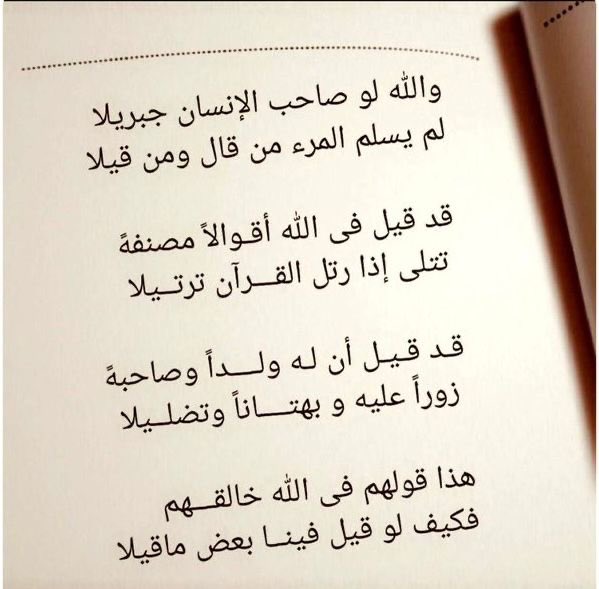 والله لو صاحب الإنسان جبريلا
لم يسلم المرء من قال ومن قيلا
قد قيل فى الله أقـوالاً مصنفةً
تتلى إذا رتل القـــرآن ترتـيلا
قـد قـيـل أن لـه ولـــداً وصاحبةً
زوراً عليه و بهتــــاناً وتضلـيلا
هذا قولهم فى الله خالقـــهم
فكيف لو قيل فينــا بعض ماقيلا